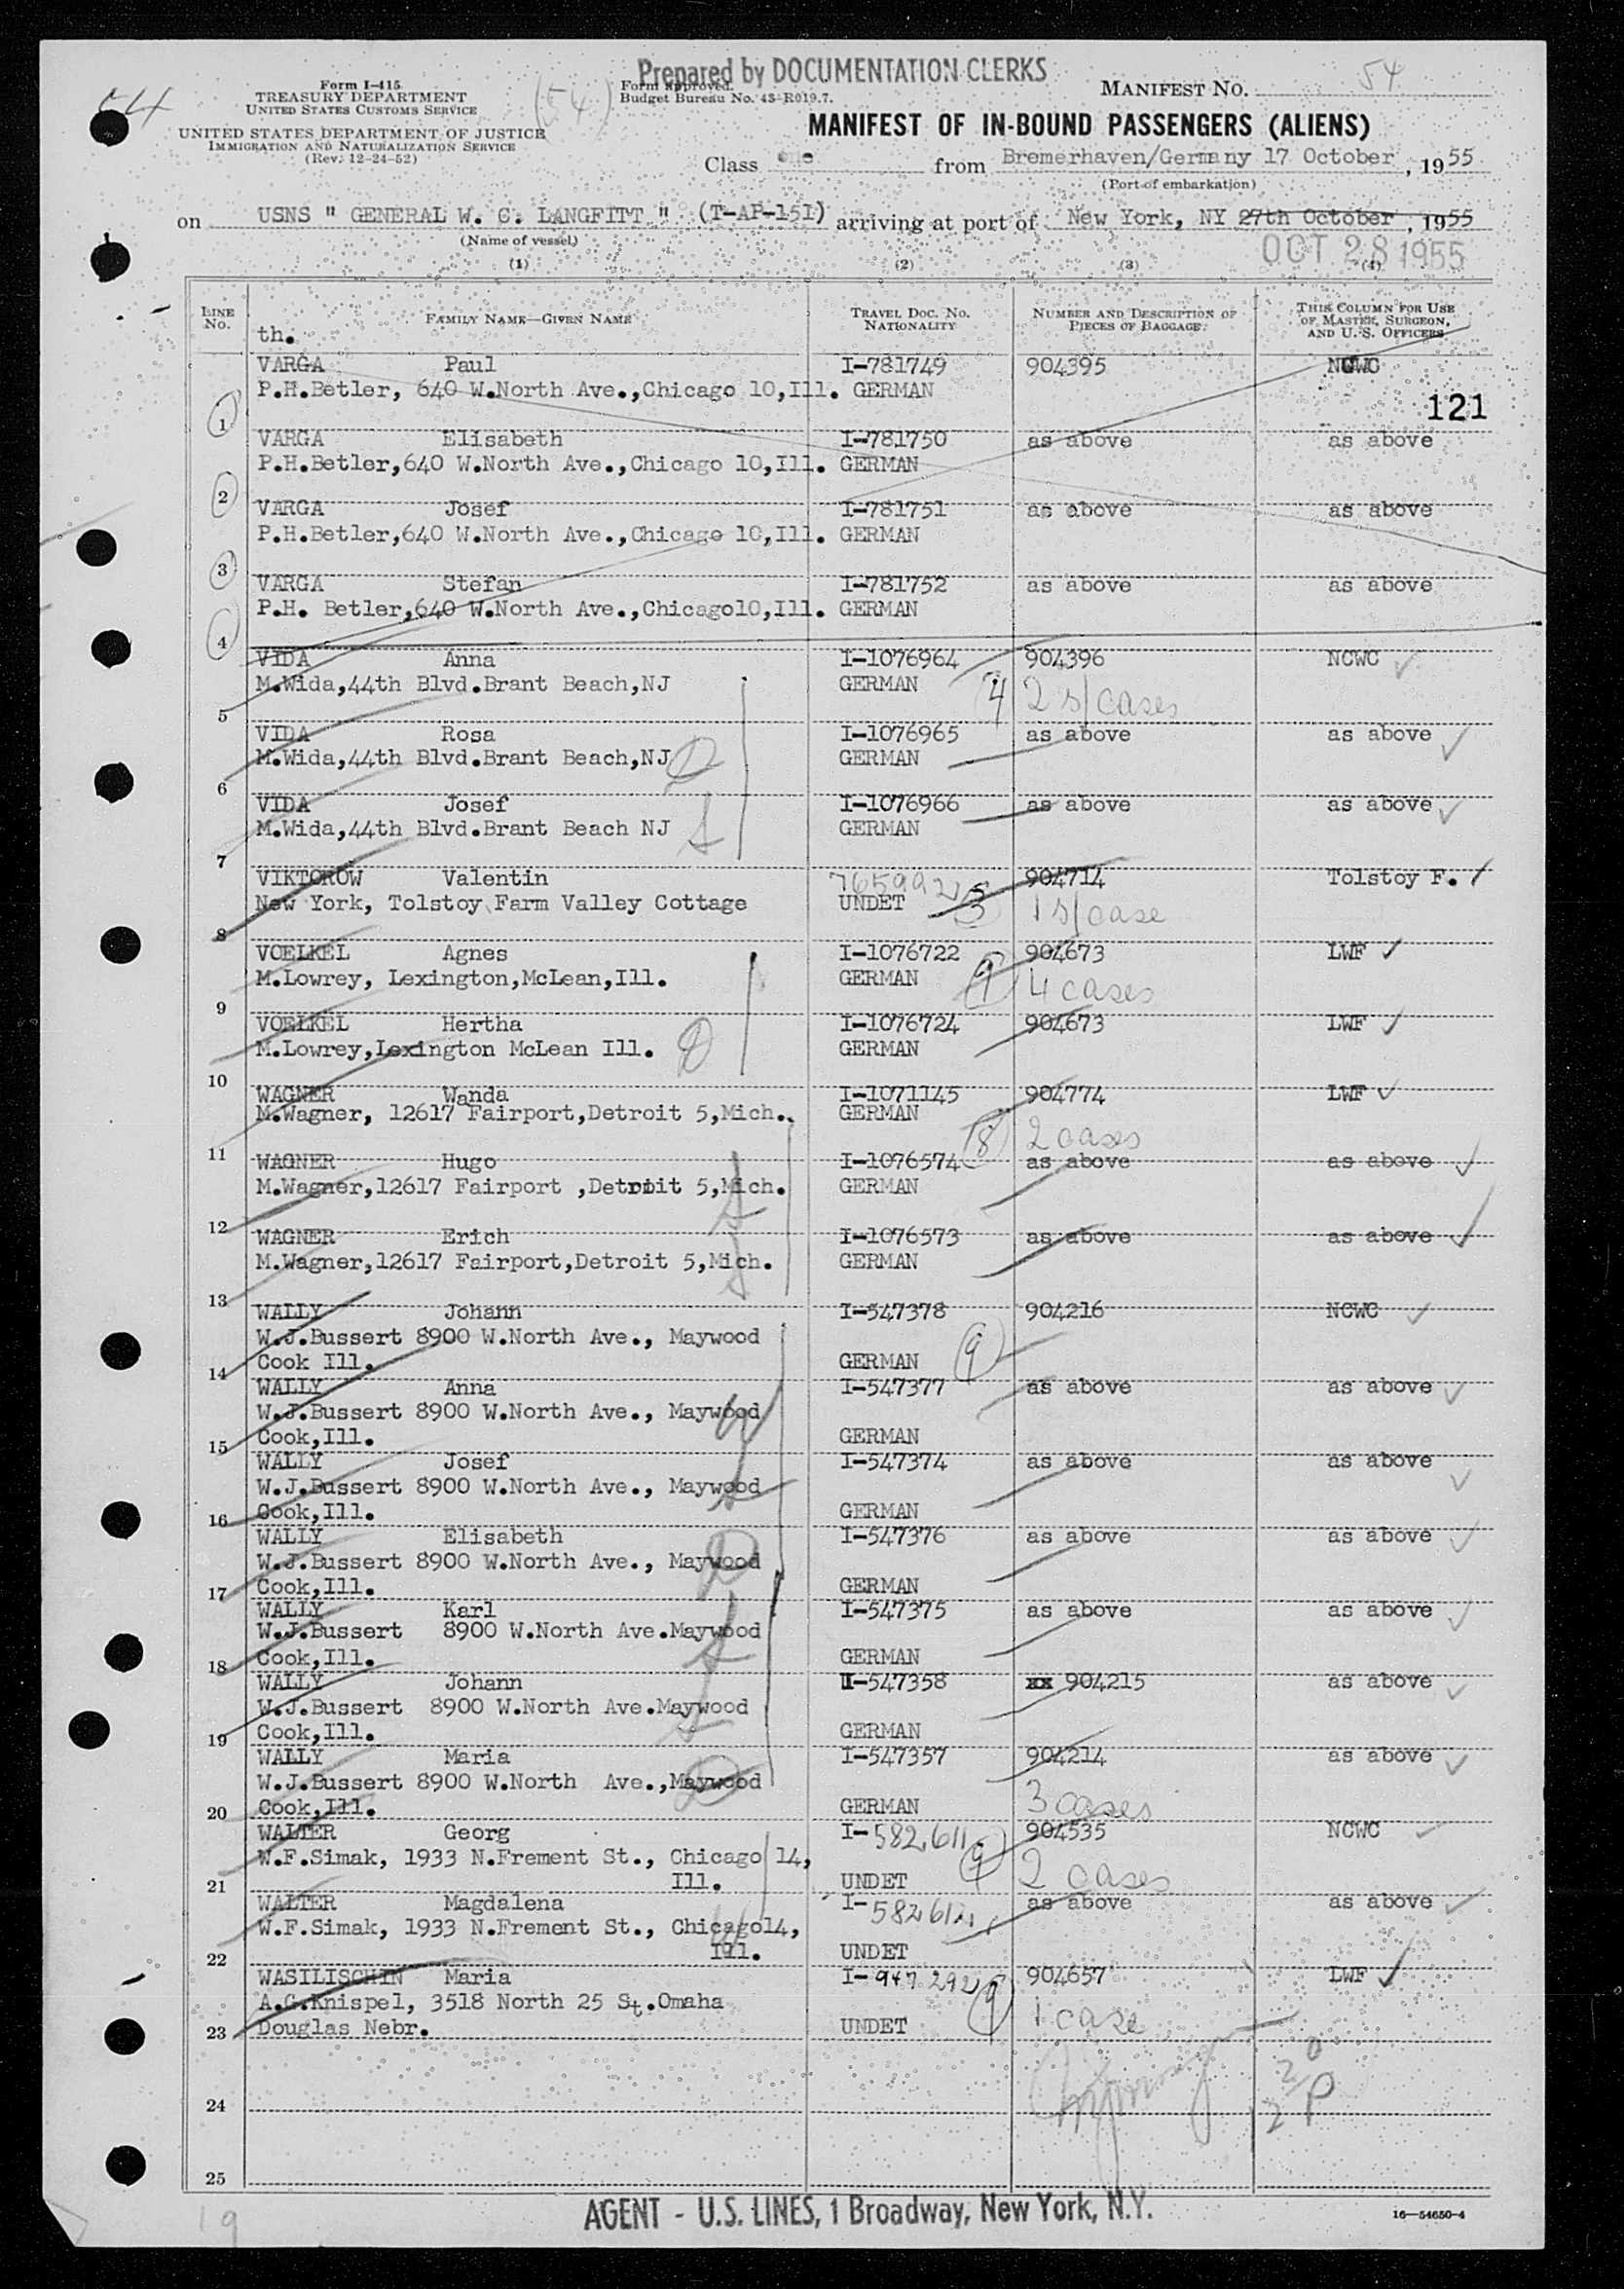 54
Prepared by DOCUMENTATION CLERKS
Form I-415
TREASURY DEPARTMENT
UNITED STATES CUSTOMS SERVICE
UNITED STATES DEPARTMENT OF JUSTICE
IMMIGRATION AND NATURALIZATION SERVICE
(Rev. 12-24-52)
(54)
Form approved.
Budget Bureau No. 43-R019.7.
MANIFEST NO. 54
MANIFEST OF IN-BOUND PASSENGERS (ALIENS)
Class one from Bremerhaven/Germany 17 October, 1955
(Port of embarkation)
on USNS " GENERAL W. C. LANGFITT " (T-AP-151) arriving at port of New York, NY 27th October, 1955
(Name of vessel)
OCT 28 1955
(1) (2) (3) (4)
LINE NO. FAMILY NAME—GIVEN NAME TRAVEL DOC. NO. NATIONALITY NUMBER AND DESCRIPTION OF PIECES OF BAGGAGE THIS COLUMN FOR USE OF MASTER, SURGEON, AND U. S. OFFICERS
th.
VARGA Paul I-781749 904395 NCWC
P.H.Betler, 640 W.North Ave.,Chicago 10,Ill. GERMAN
121
1
VARGA Elisabeth I-781750 as above as above
P.H.Betler,640 W.North Ave.,Chicago 10,Ill. GERMAN
2
VARGA Josef I-781751 as above as above
P.H.Betler,640 W.North Ave.,Chicago 10,Ill. GERMAN
3
VARGA Stefan I-781752 as above as above
P.H. Betler,640 W.North Ave.,Chicago10,Ill. GERMAN
4
VIDA Anna I-1076964 904396 NCWC
M.Wida,44th Blvd.Brant Beach,NJ GERMAN 4 2 s/cases
5
VIDA Rosa I-1076965 as above as above
M.Wida,44th Blvd.Brant Beach,NJ GERMAN
6
VIDA Josef I-1076966 as above as above
M.Wida,44th Blvd.Brant Beach NJ GERMAN
7
VIKTOROW Valentin 765992 904714 Tolstoy F.
New York, Tolstoy Farm Valley Cottage UNDET 1 s/case
8
VOELKEL Agnes I-1076722 904673 LWF
M.Lowrey, Lexington,McLean,Ill. GERMAN 9 4 cases
9
VOELKEL Hertha I-1076724 904673 LWF
M.Lowrey,Lexington McLean Ill. GERMAN
10
WAGNER Wanda I-1071145 904774 LWF
M.Wagner, 12617 Fairport,Detroit 5,Mich. GERMAN
8 2 cases
11
WAGNER Hugo I-1076574 as above as above
M.Wagner,12617 Fairport ,Detroit 5,Mich. GERMAN
12
WAGNER Erich I-1076573 as above as above
M.Wagner,12617 Fairport,Detroit 5,Mich. GERMAN
13
WALLY Johann I-547378 904216 NCWC
W.J.Bussert 8900 W.North Ave., Maywood
Cook Ill. GERMAN 9
14
WALLY Anna I-547377 as above as above
W.J.Bussert 8900 W.North Ave., Maywood
Cook,Ill. GERMAN
15
WALLY Josef I-547374 as above as above
W.J.Bussert 8900 W.North Ave., Maywood
Cook,Ill. GERMAN
16
WALLY Elisabeth I-547376 as above as above
W.J.Bussert 8900 W.North Ave., Maywood
Cook,Ill. GERMAN
17
WALLY Karl I-547375 as above as above
W.J.Bussert 8900 W.North Ave.Maywood
Cook,Ill. GERMAN
18
WALLY Johann I-547358 xx 904215 as above
W.J.Bussert 8900 W.North Ave.Maywood
Cook,Ill. GERMAN
19
WALLY Maria I-547357 904214 as above
W.J.Bussert 8900 W.North Ave.,Maywood
Cook,Ill. GERMAN 3 cases
20
WALTER Georg I-582,611 904535 NCWC
W.F.Simak, 1933 N.Frement St., Chicago 14,
Ill. UNDET 9 2 cases
21
WALTER Magdalena I-582612 as above as above
W.F.Simak, 1933 N.Frement St., Chicago14,
Ill. UNDET
22
WASILISCHIN Maria I-947292 904657 LWF
A.G.Knispel, 3518 North 25 St.Omaha
Douglas Nebr. UNDET 9 1 case
23
24
25
19
AGENT - U.S. LINES, 1 Broadway, New York, N.Y.
16—54650-4